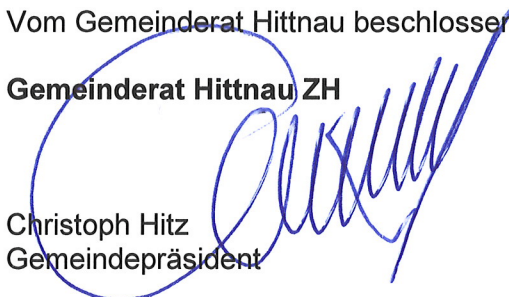 Vom Gemeinderat Hittnau beschlossen
Gemeinderat Hittnau ZH
Christoph Hitz
Gemeindepräsident